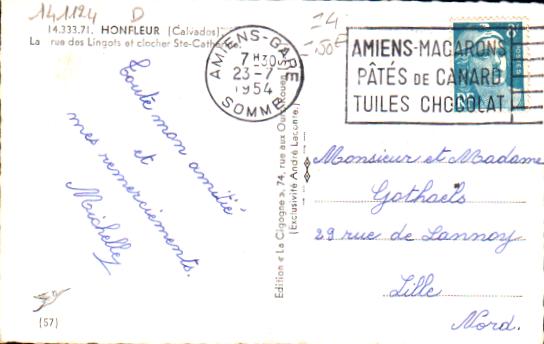 141124 D
14.333.71. HONFLEUR (Calvados)
La rue des Lingots et clocher Ste-Cath
Toute mon amitié
et
mes remerciements.
Michelley
(57)
AMIENS-GARE
7H30
23-7
1954
SOMME
Edition « La Cigogne », 74, rue aux Ours, Rouen
(Exclusivité André Laconte.)
AMIENS-MACARONS
PÂTÉS DE CANARD
TUILES CHOCOLAT
Monsieur et Madame
Gothaels
29 rue de Lannoy
Lille
Nord.